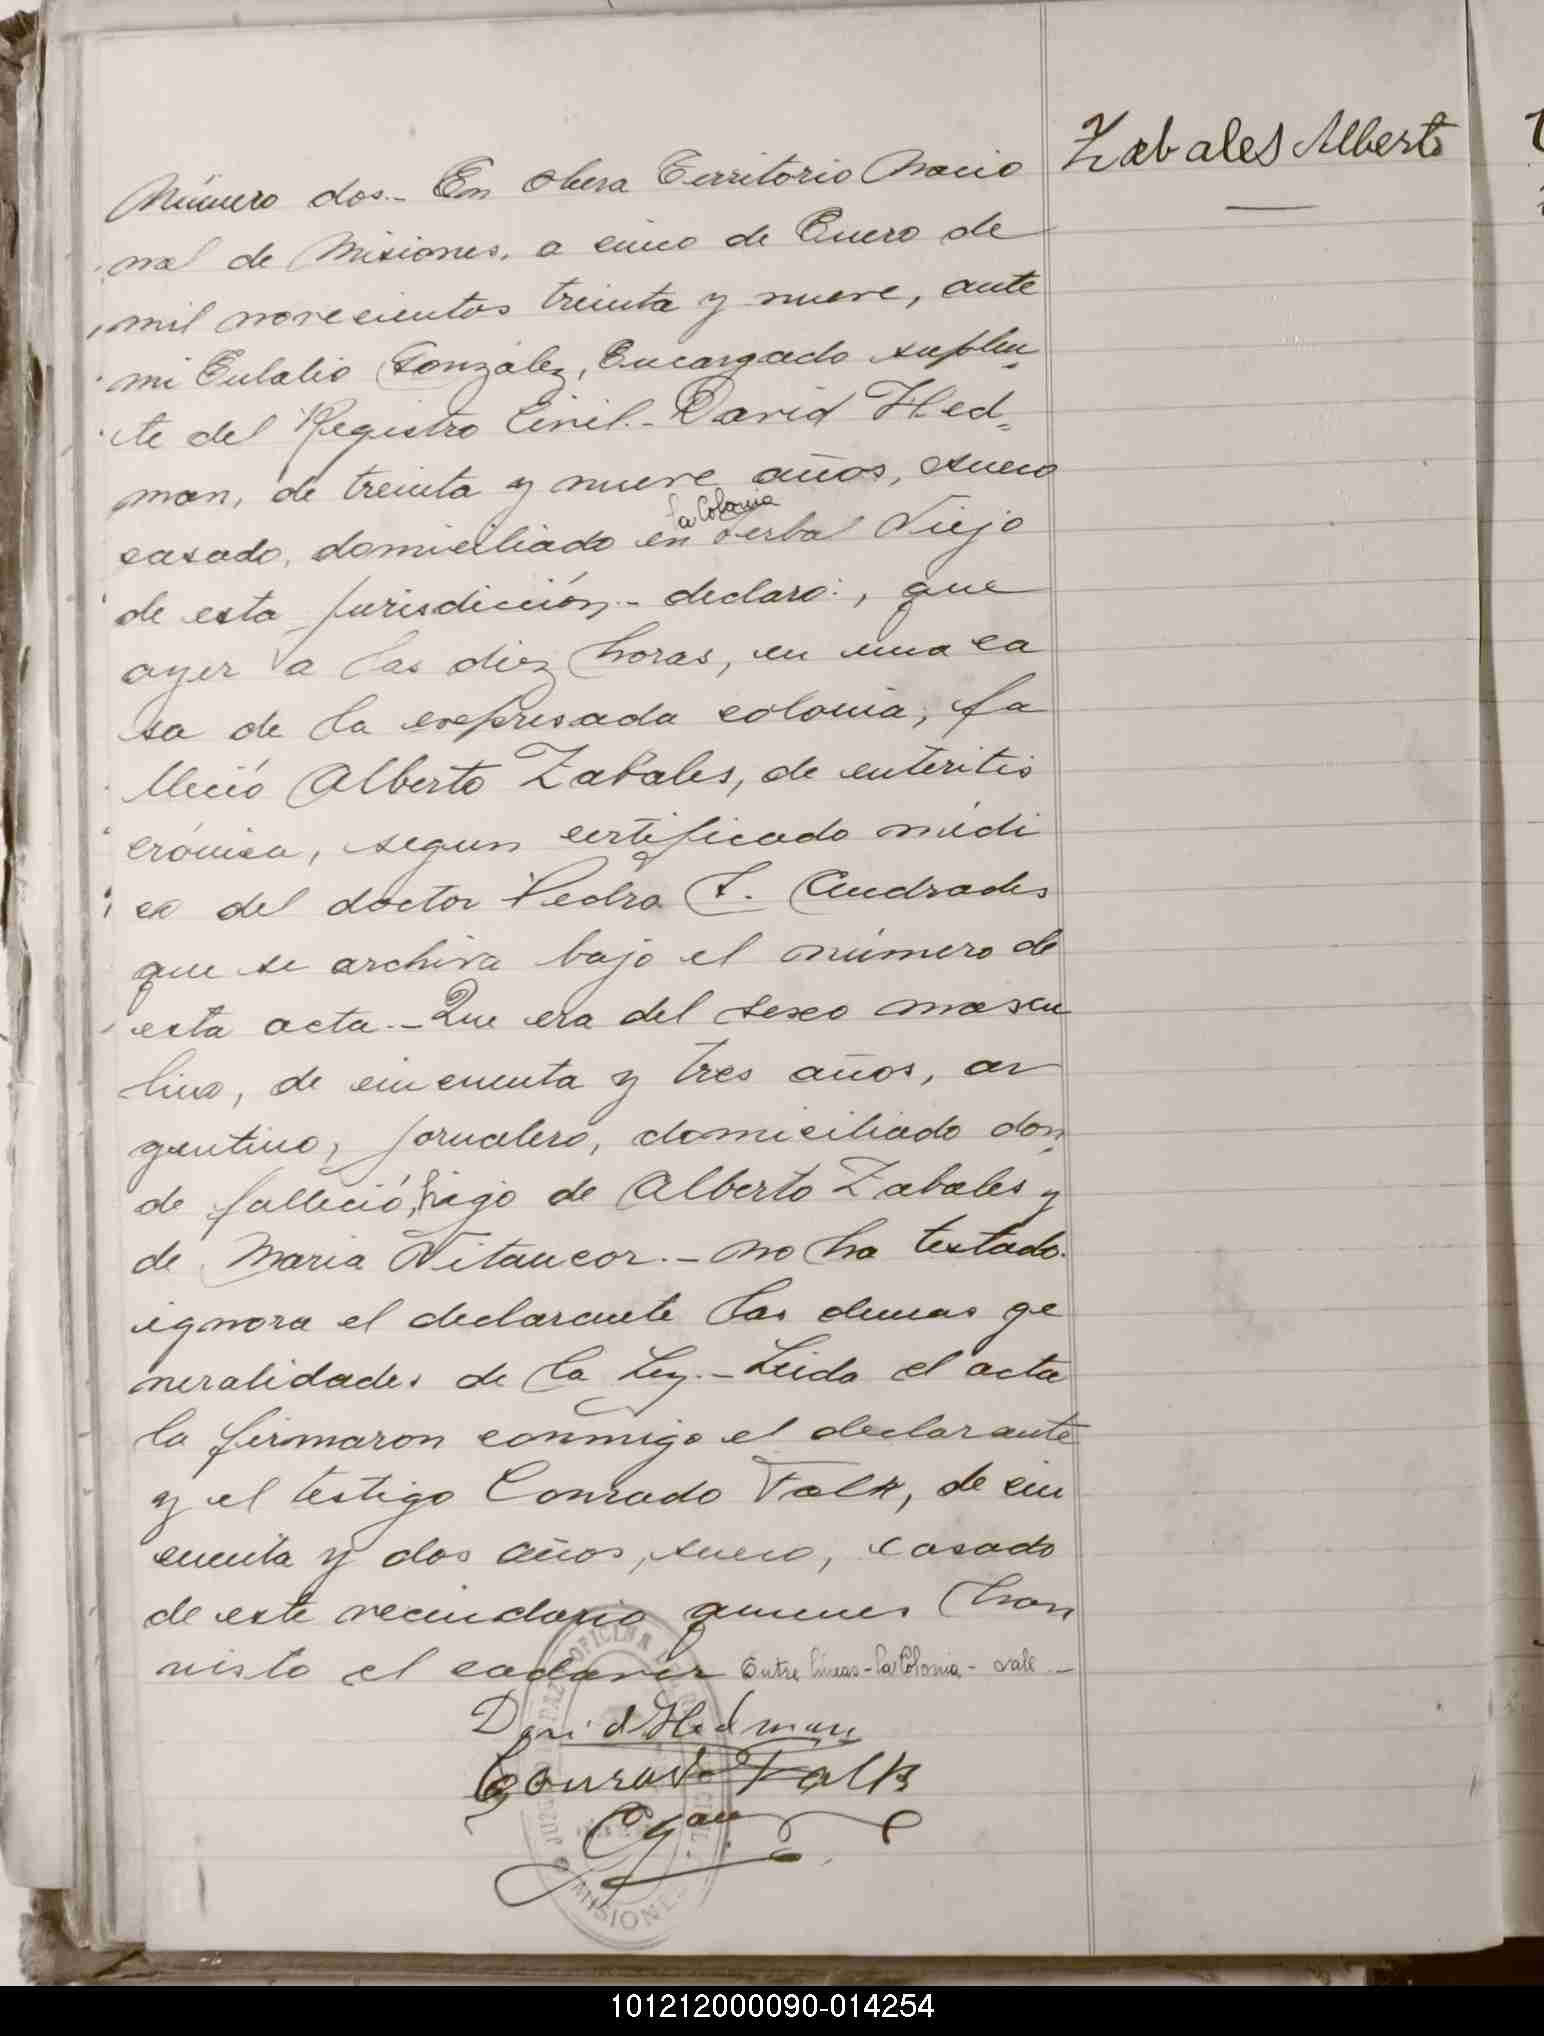 Zabales Alberto
Número dos.- En Obera Territorio Nacio
nal de Misiones, a cinco de Enero de
mil novecientos treinta y nueve, ante
mi Eulalio González, Encargado suplen
te del Registro Civil.- David Hed=
man, de treinta y nueve años, sueco
la Colonia
casado, domiciliado en Yerbal Viejo
de esta jurisdicción.- declaro:, que
ayer a las diez horas, en una ca
sa de la expresada colonia, fa
lleció Alberto Zabales, de enteritis
crónica, segun certificado médi
co del doctor Pedro S. Andrades
que se archiva bajo el número de
esta acta.- Que era del sexo mascu
lino, de cincuenta y tres años, ar
gentino, jornalero, domiciliado don
de falleció, hijo de Alberto Zabales y
de Maria Vitancor.- no ha testado.
ignora el declarante las demas ge
neralidades de la Ley.- Leida el acta
la firmaron conmigo el declarante
y el testigo Conrado Falk, de cin
cuenta y dos años, sueco, casado
de este vecindario quienes han
visto el cadaver Entre lineas-la Colonia- vale.-
David Hedman
Conrado Falk
OFICINA
MISIONE
101212000090-014254